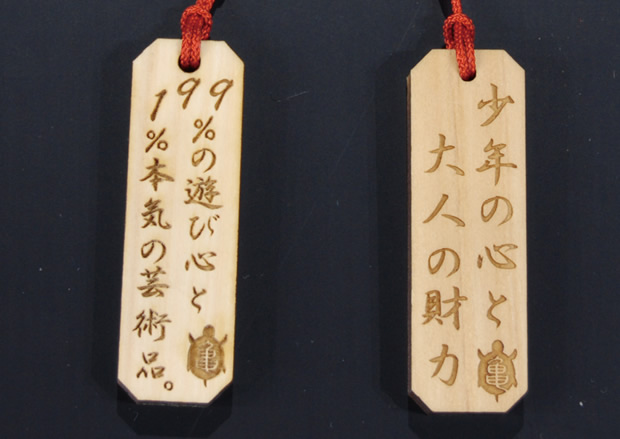 99%の遊び心と
亀
1%本気の芸術品。
少年の心と
亀
大人の財力